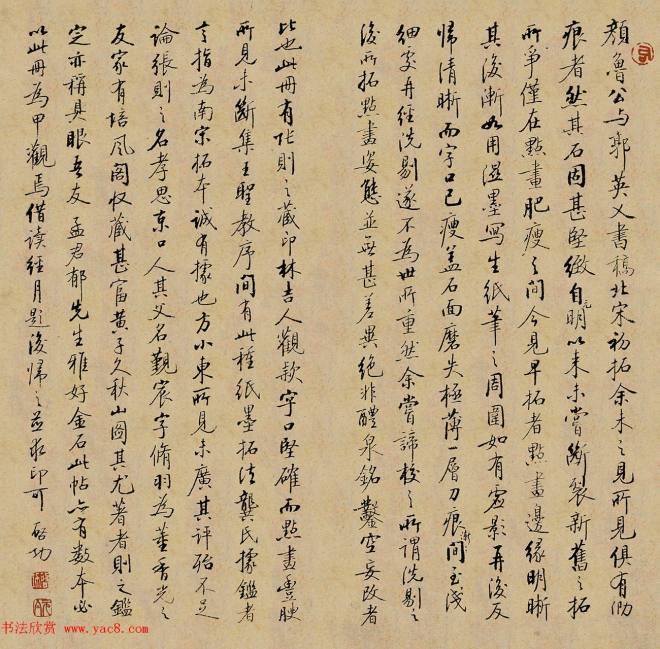 顏魯公与郭英乂書稿北宋初拓余未之見所見俱有泐
痕者然其石固甚堅緻自元明以来未嘗斷裂新舊之拓
所爭僅在點畫肥瘦之間今見早拓者點畫邊緣明晰
其後漸如用濕墨寫生紙筆之周圍如有虛影再後反
帰清晰而字口已瘦盖石面磨失極薄一層刀痕漸間至淺
細處再經洗剔遂不為世所重然余嘗諦校之所謂洗剔之
後所拓點畫姿態並無甚差異絕非醴泉銘鑿空妄改者
比也此冊有張則之藏印林吉人觀款字口堅確而點畫豐腴
所見未斷集王聖教序間有此種紙墨拓法龔氏據鑑者
之言指為南宋拓本誠有據也方小東所見未廣其評殆不足
論張則之名孝思京口人其父名覲宸字脩羽為董香光之
友家有培風閣收藏甚富黃子久秋山圖其尤著者則之鑑
定亦稱具眼吾友孟君郁先生雅好金石此帖亦有數本必
以此冊為甲觀焉借读經月題後帰之並求印可 启功
书法欣赏 www.yac8.com